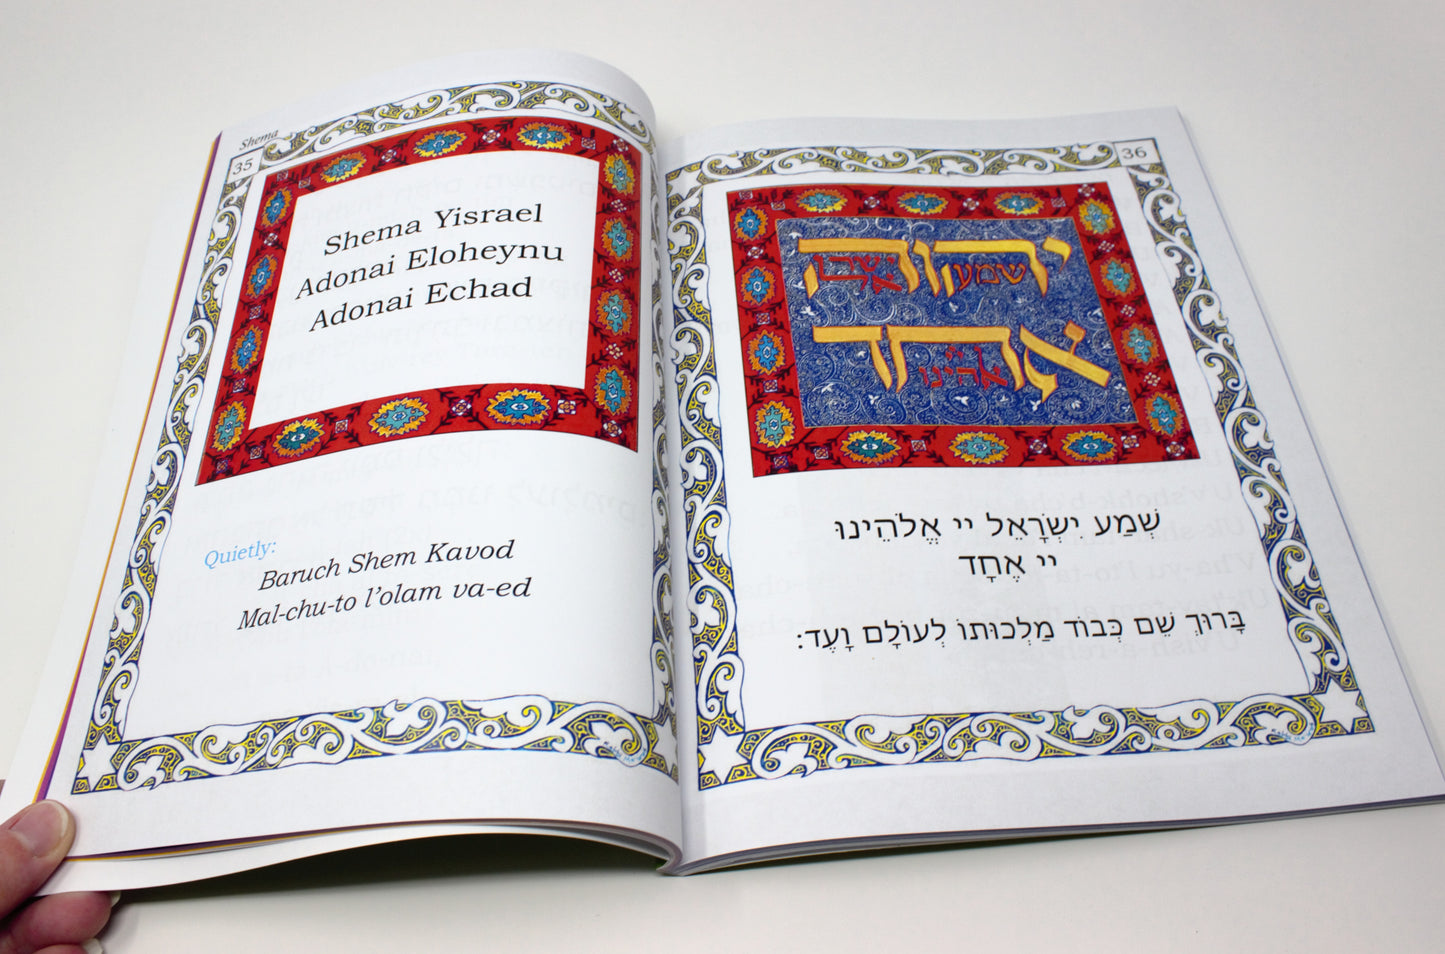 Shema
35
Shema Yisrael
Adonai Eloheynu
Adonai Echad
Quietly:
Baruch Shem Kavod
Mal-chu-to l'olam va-ed
36
יהוה
שמע ישראל
אחד
יי אלהינו
שְׁמַע יִשְׂרָאֵל יי אֱלֹהֵינוּ
יי אֶחָד
בָּרוּךְ שֵׁם כְּבוֹד מַלְכוּתוֹ לְעוֹלָם וָעֶד: